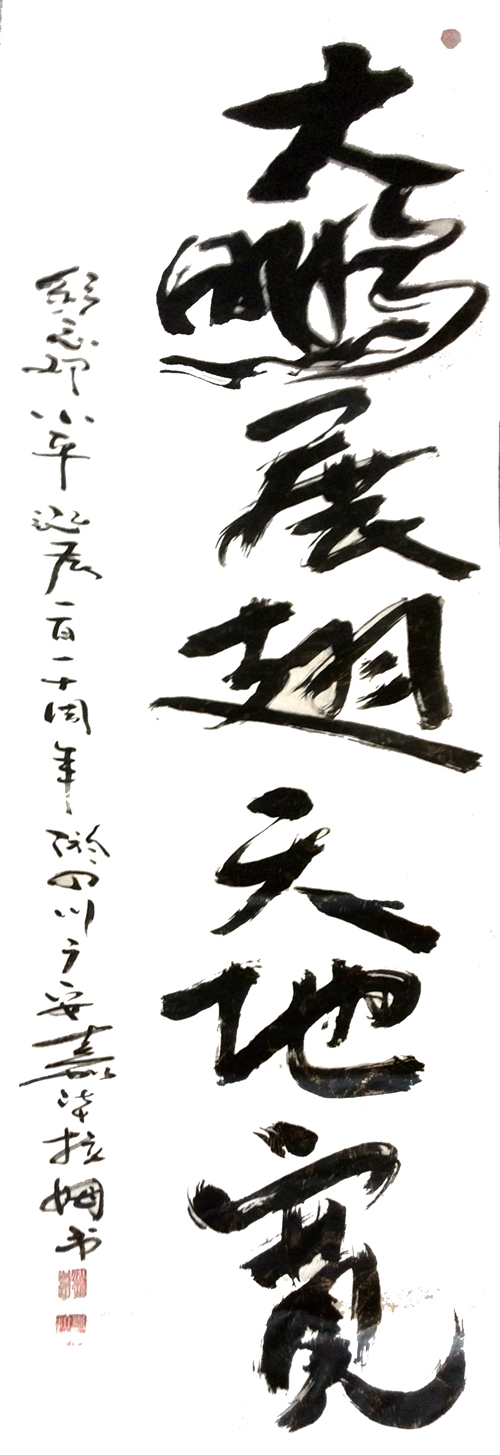 大鵬展翅天地寬
纪念邓小平诞辰一百一十周年於四川广安嘉拉姆书